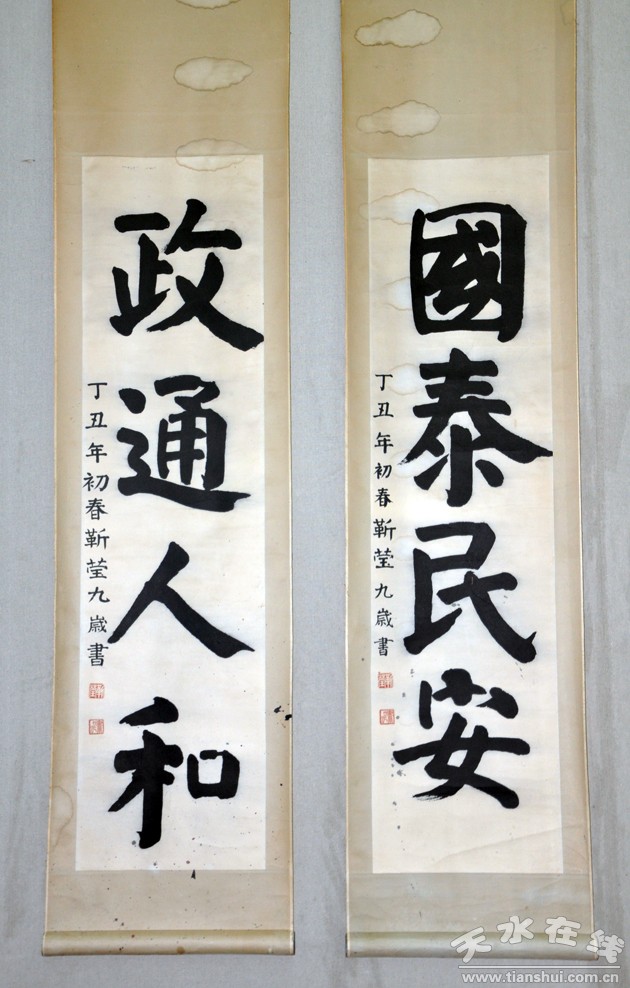 國泰民安
丁丑年初春靳莹九歲書
政通人和
丁丑年初春靳莹九歲書
天水在线
www.tianshui.com.cn